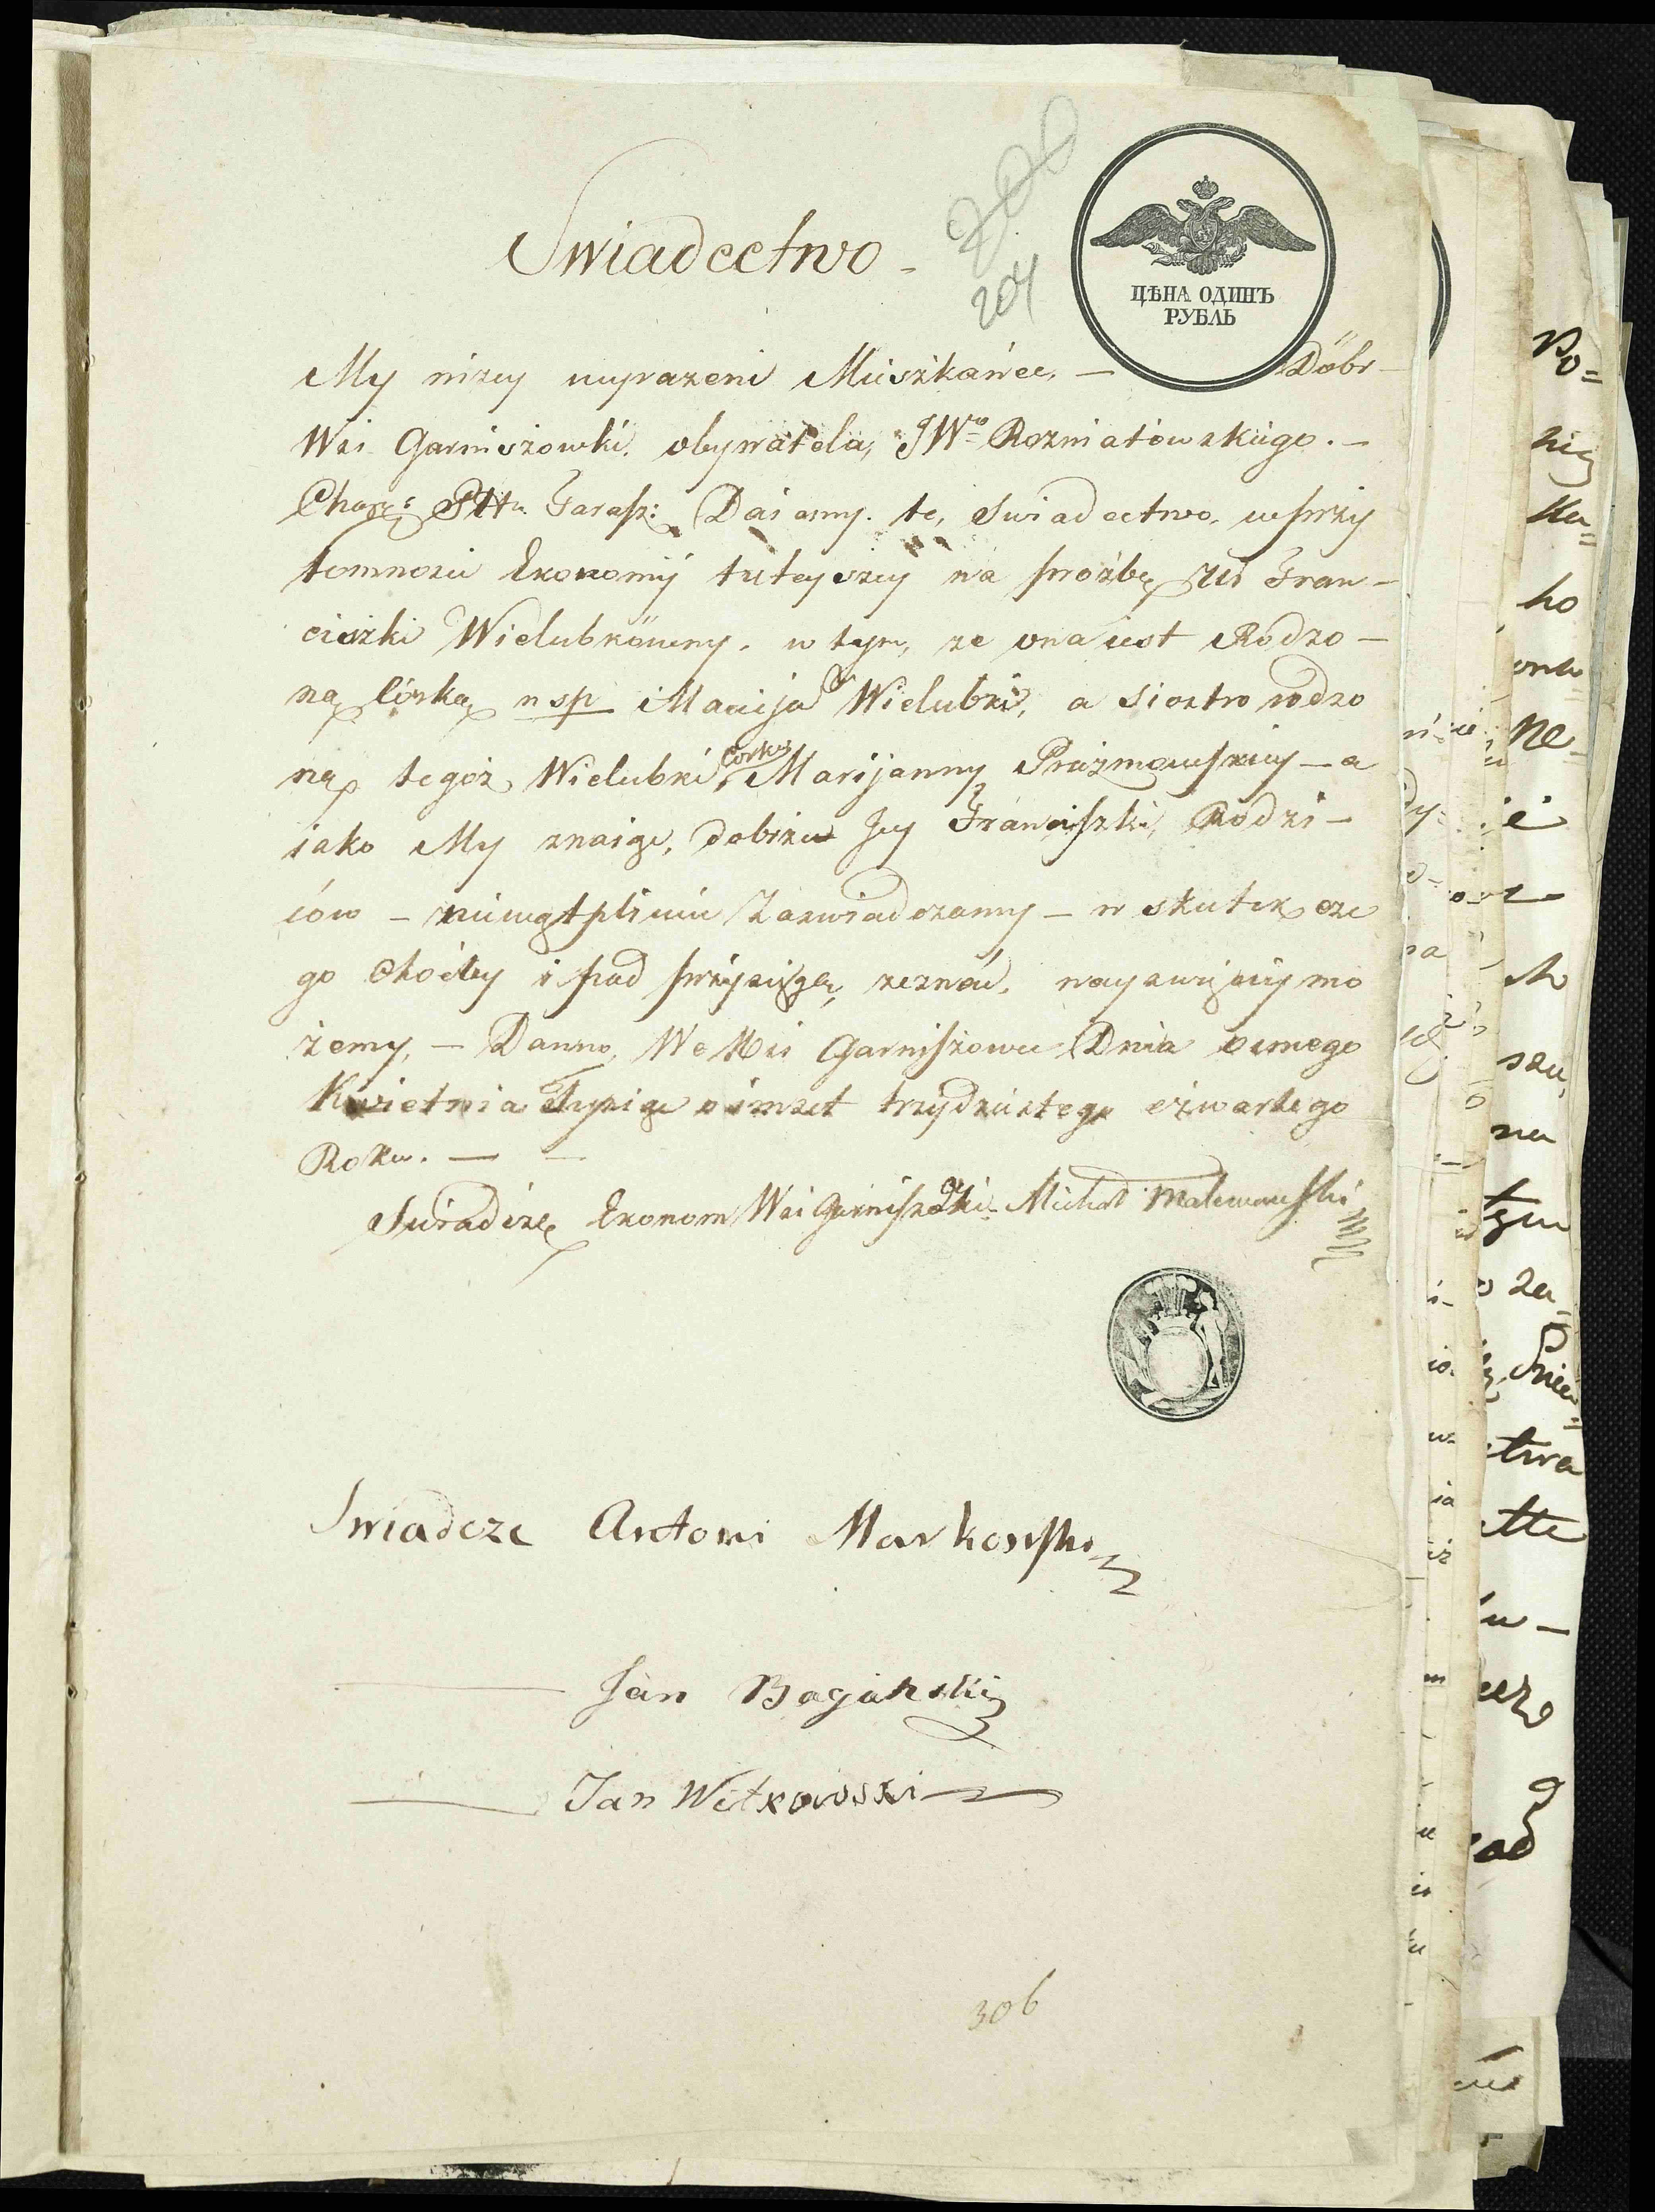 Swiadectwo -
204
ЦѢНА ОДИНЪ
РУБЛЬ
My niżey wyrazeni Mieszkańce, — Döbr -
Wsi Garniszowki, obywatela, JWo Rozniatowskiego. -
Dai amy. te, swiadectwo, wprzy
tomnosci Ekonomij tuteyszey na proźbę Fran -
ciszki Wielubköwny, w tym, ze ona iest Rodzo -
ną Córką nsp Macija Wielubki, a Siostro rodzo
ną tegoż Wielubki, Corką Marijanny Prażmowskiey - a
iako My znaiąc, dobrze Jey Franciszki, Rodzi -
ców - niewątpliwie Zaswiadczamy - w skutek cze
go choćby i pod przysięgą, zeznać, nayswięciey mo
żemy, - Danno, We Wsi Garniszowce Dnia osmego
Kwietnia Tysiąc osmset trzydziestego czwartego
Roku. — —
Swiadczę Ekonom Wsi Garniszowki - Michał Malewanski
Swiadcze Antoni Markowski
Jan Bagański
Jan Witkowski
306